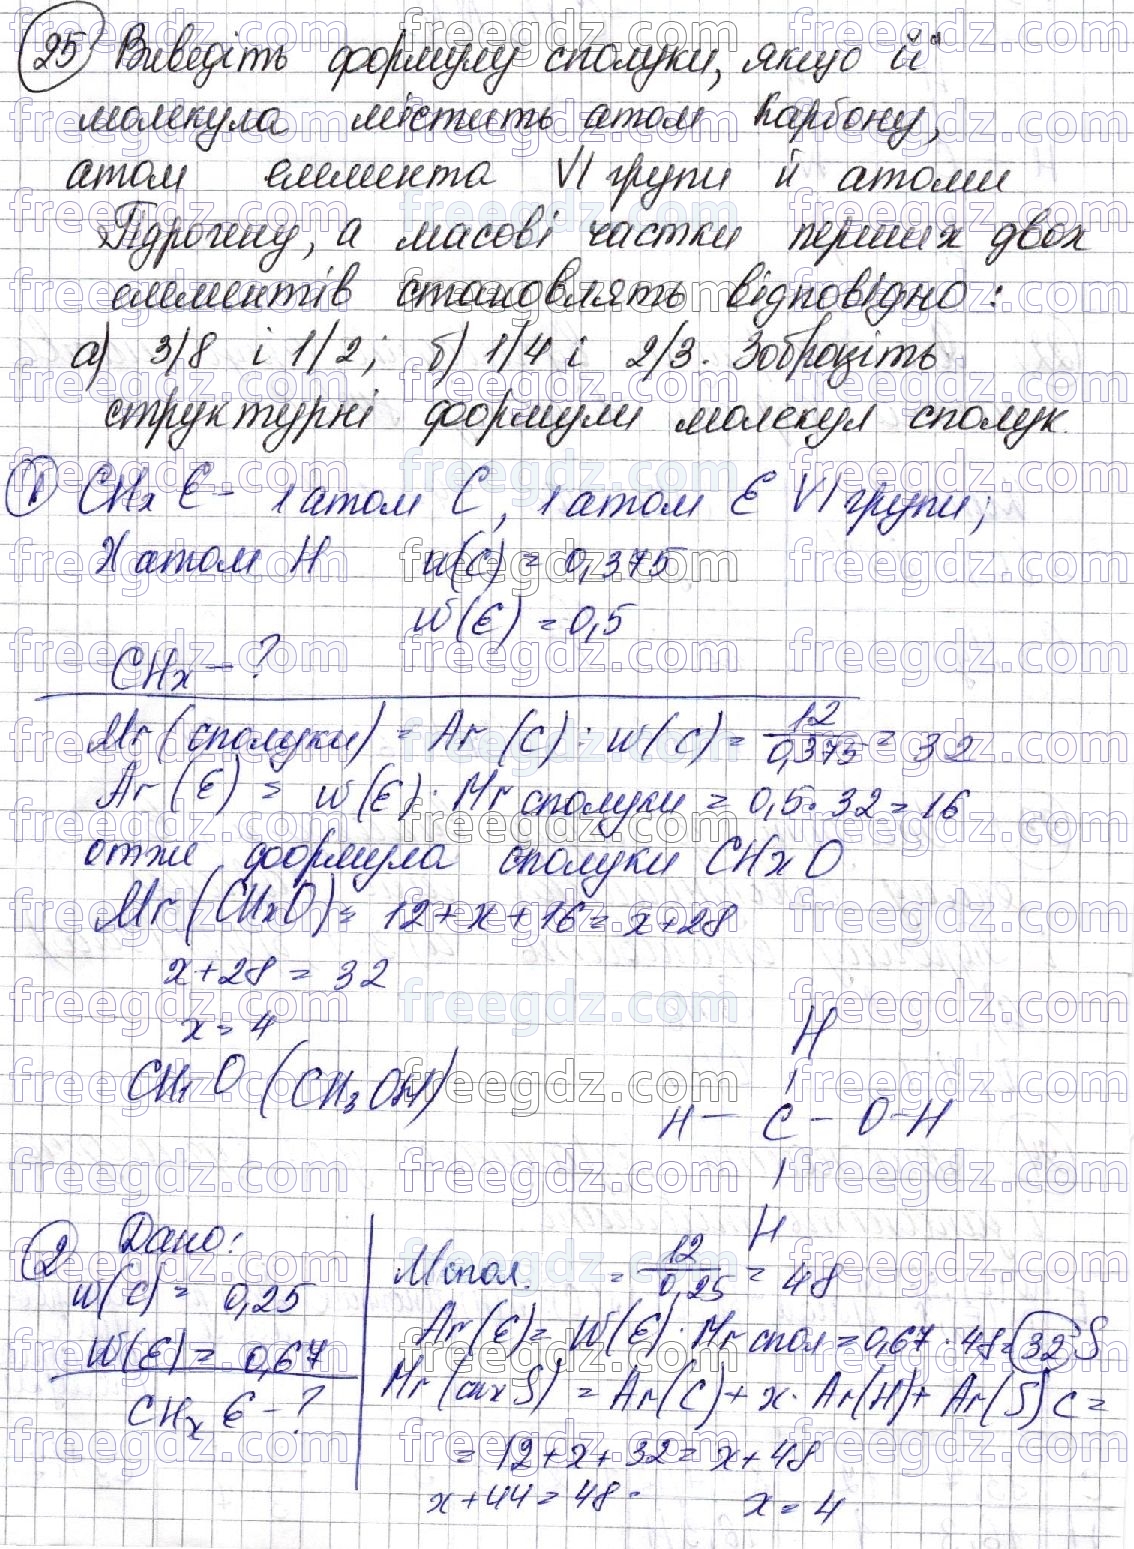 25 Виведіть формулу сполуки, якщо її
молекула містить атом Карбону,
атом елемента VI групи й атоми
Гідрогену, а масові частки перших двох
елементів становлять відповідно:
а) 3/8 і 1/2; б) 1/4 і 2/3. Зобразіть
структурні формули молекул сполук.
1 CHx E - 1 атом C, 1 атом E VI групи;
X атом H w(C) = 0,375
w(E) = 0,5
CHx - ?
Mr (сполуки) = Ar (C) : w(C) = 12/0,375 = 32
Ar (E) = w(E) · Mr сполуки = 0,5 · 32 = 16
отже, формула сполуки CHxO
Mr (CHxO) = 12 + x + 16 = x + 28
x + 28 = 32
x = 4
CH4O (CH3OH)
H
H - C - O - H
H
2 Дано:
w(C) = 0,25
w(E) = 0,67
CHx E - ?
M спол. = 12/0,25 = 48
Ar(E) = w(E) · Mr спол = 0,67 · 48 = 32 S
Mr (CHxS) = Ar(C) + x · Ar(H) + Ar(S) C =
= 12 + x + 32 = x + 48
x + 44 = 48 x = 4
freegdz.com